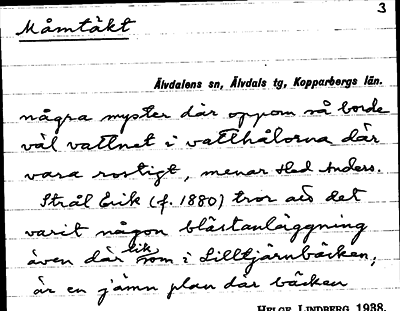 3
Måmtäkt
Älvdalens sn, Älvdals tg, Kopparbergs län.
några myster där oppom så borde
väl vattnet i vatthålorna där
vara rostigt, menar Hed Anders.
Strål Erik (f. 1880) tror att det
varit någon blästanläggning
även där liksom i Lilltjärnbäcken,
är en jämn plan där bäcken
HELGE LINDBERG 1938.